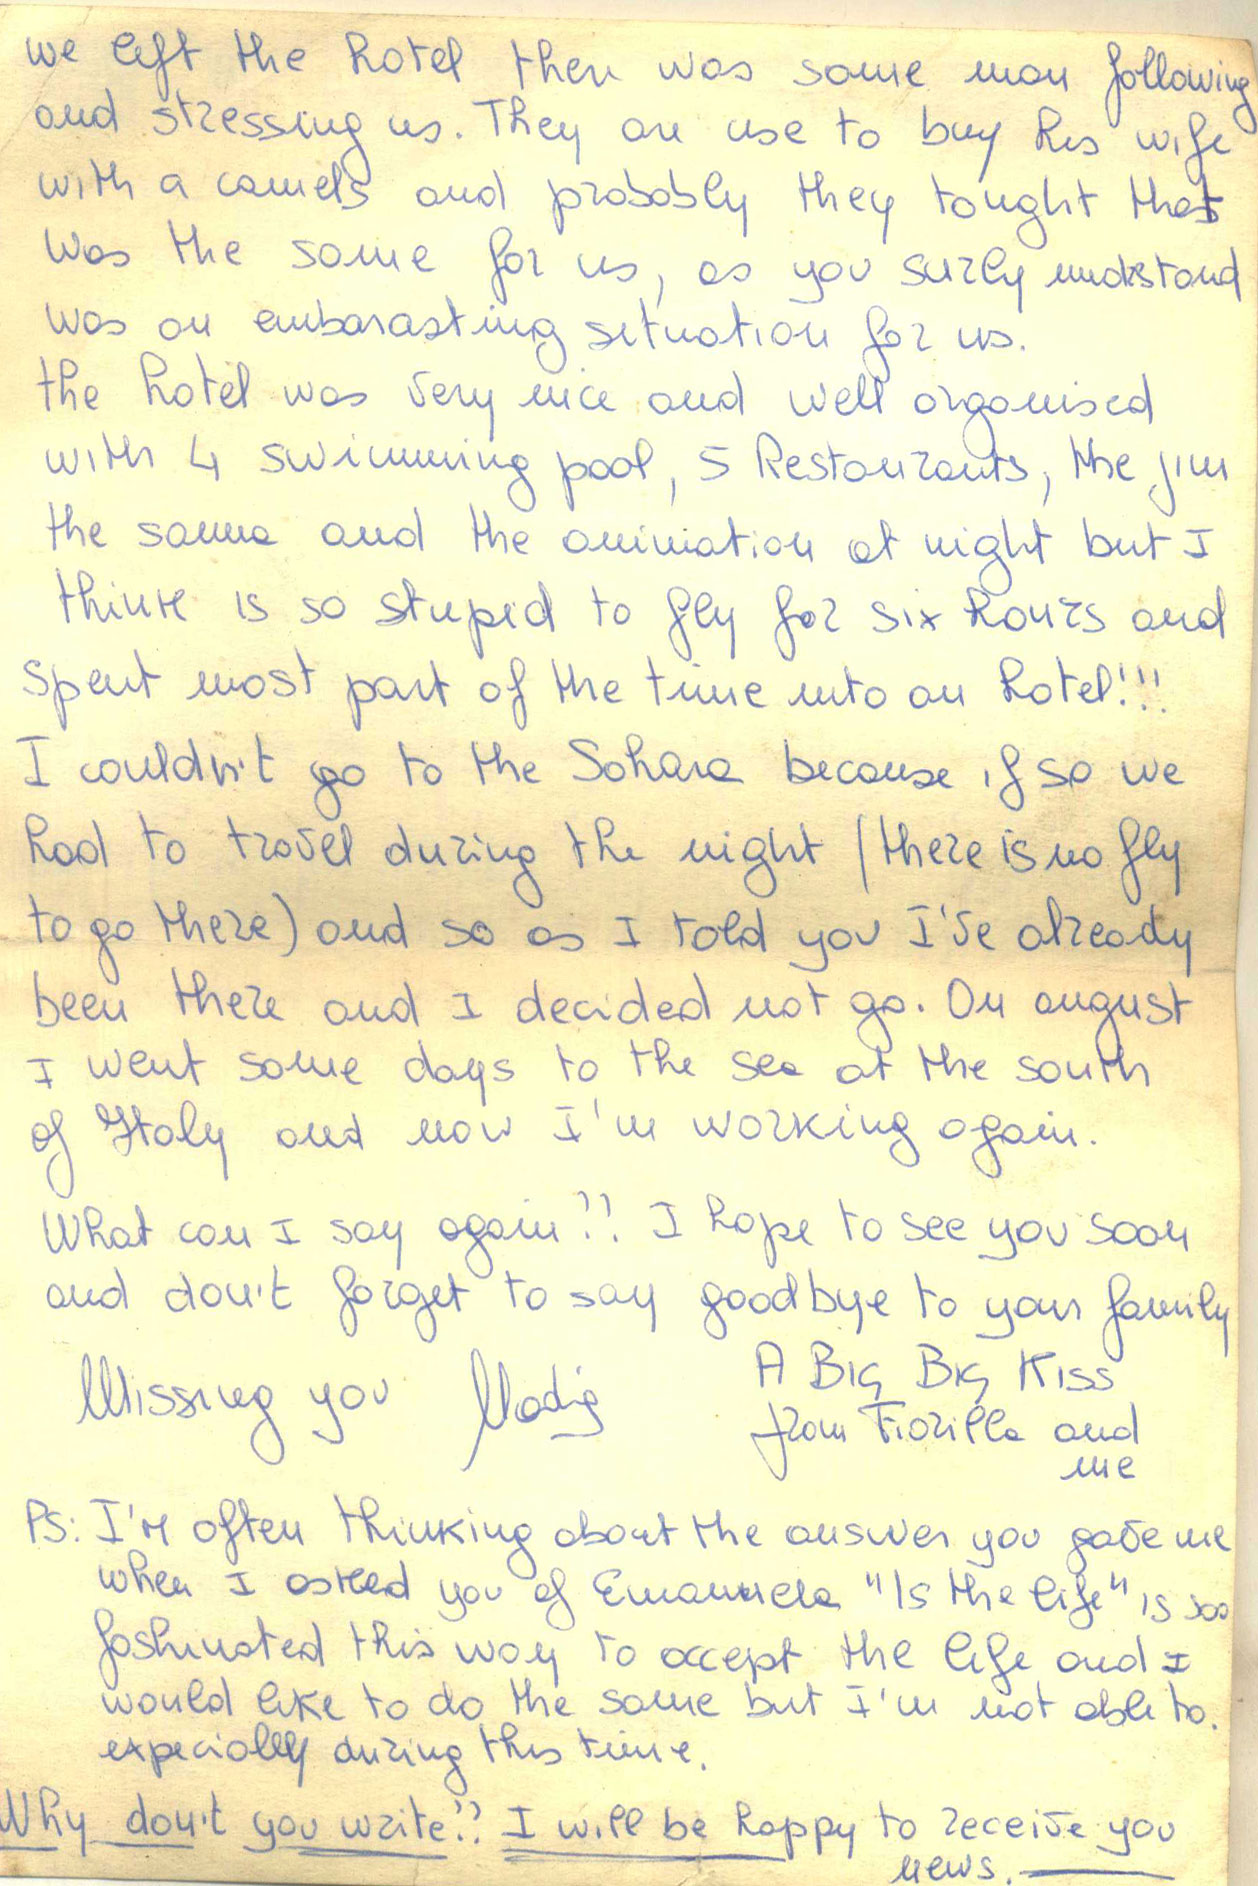 we left the hotel ther was some man following
and stressing us. They are use to buy his wife
with a camels and probably they tought that
was the same for us, as you surly understand
was an embarasting situation for us.
the hotel was very nice and well organised
with 4 swimming pool, 5 Restaurants, the jim
the sauna and the animation at night but I
think is so stupid to fly for six hours and
spent most part of the time into an hotel!!!
I couldn't go to the Sahara because if so we
had to travel during the night (there is no fly
to go there) and so as I told you I've already
been there and I decided not go. On august
I went some days to the sea at the south
of Italy and now I'm working again.
What can I say again?? I hope to see you soon
and don't forget to say goodbye to your family
Missing you
A Big Big Kiss
from Fiorilla and
me
PS: I'm often thinking about the answer you gave me
when I asked you of Emanuela "Is the life" is soo
fashinated this way to accept the life and I
would like to do the same but I'm not able to.
expecially during this time.
Why don't you write?? I will be happy to receive you
news.